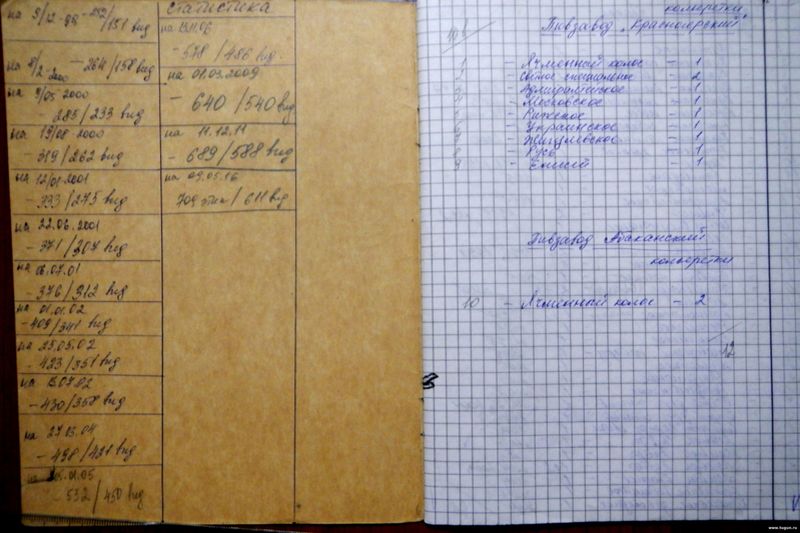 на 9/12-99 - 252/151 вид
на 8/2 2000 - 264/158 вид
на 9/05 2000
- 285/233 вид
на 19/08 2000
- 319/262 вид
на 12/01-2001
- 333/275 вид
на 22.06.2001
- 371/307 вид
на 06.07.01
- 376/312 вид
на 01.01.02
- 409/341 вид
на 25.05.02
- 423/351 вид
на 13.07.02
- 430/358 вид
на 27.13.04
- 498/421 вид
на 05.01.05
- 532/450 вид
статистика
на 13.11.06
- 578/486 вид.
на 01.03.2009
- 640/540 вид
на 11.12.11
- 689/588 вид
на 09.05.16
709 этик/611 вид
кольеретки
Пивзавод „Красноярский"
1 - Ячменный колос - 1
2 - Светлое специальное - 2
3 - Адмиралтейское - 1
4 - Московское - 1
5 - Рижское - 1
6 - Украинское - 1
7 - Жигулёвское - 1
8 - Русь - 1
9 - Енисей - 1
Пивзавод Абаканский
кольеретки
10 - Ячменный колос - 2
12
www.tugun.ru